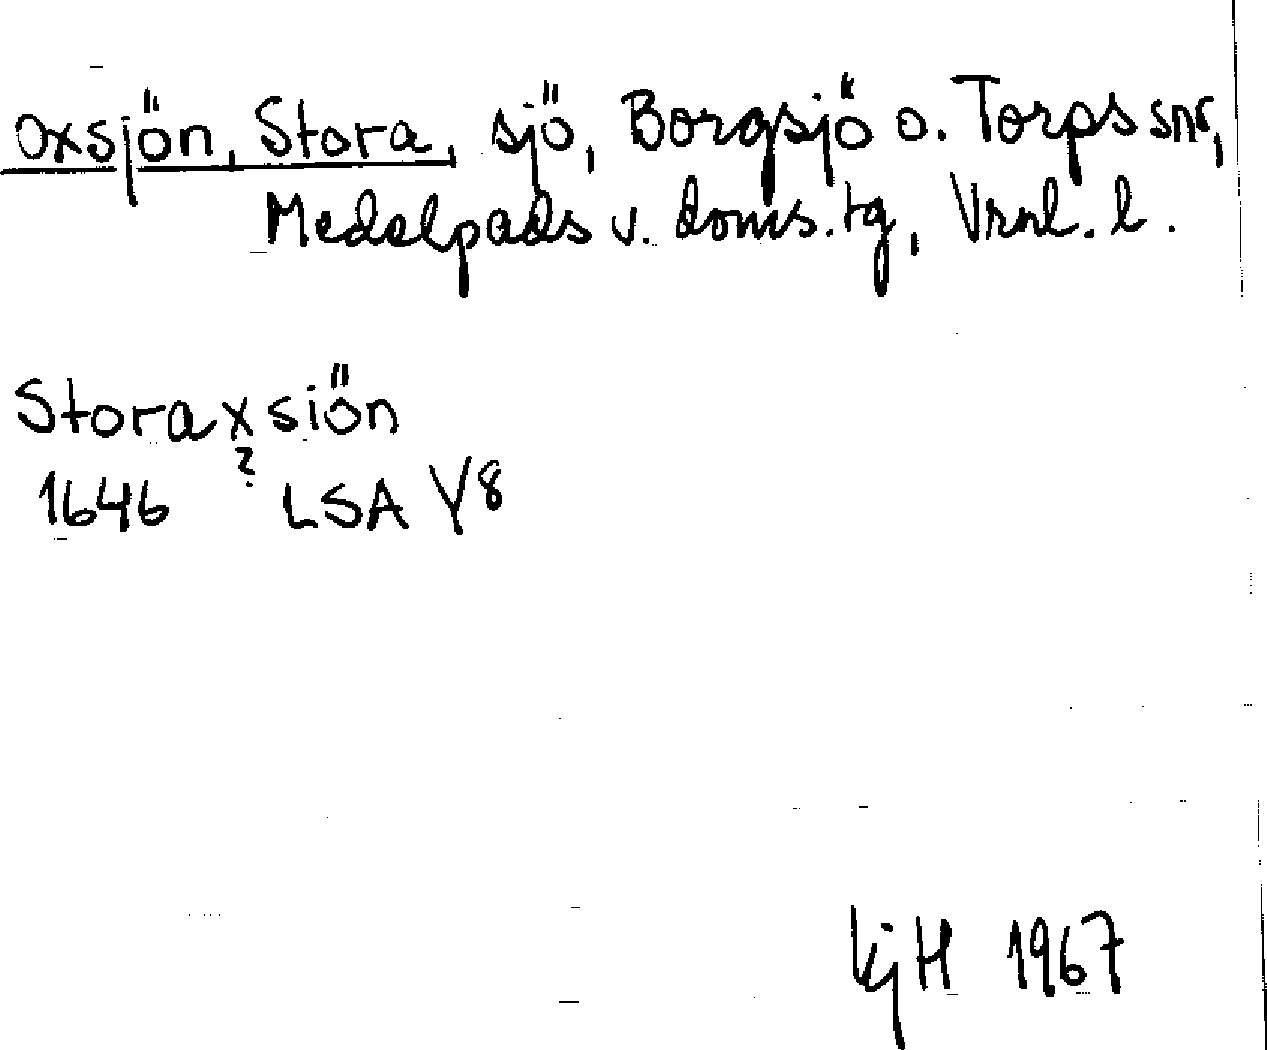 Oxsjön, Stora, sjö, Borgsjö o. Torps snr,
Medelpads v. doms.tg, Vrnl. l.
Storaxsiön
?
1646 LSA Y8
KjH 1967